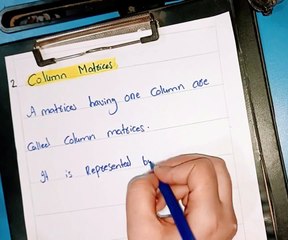 2 Column Matrices
A matrices having one Column are
Called Column matrices.
It is Represented by